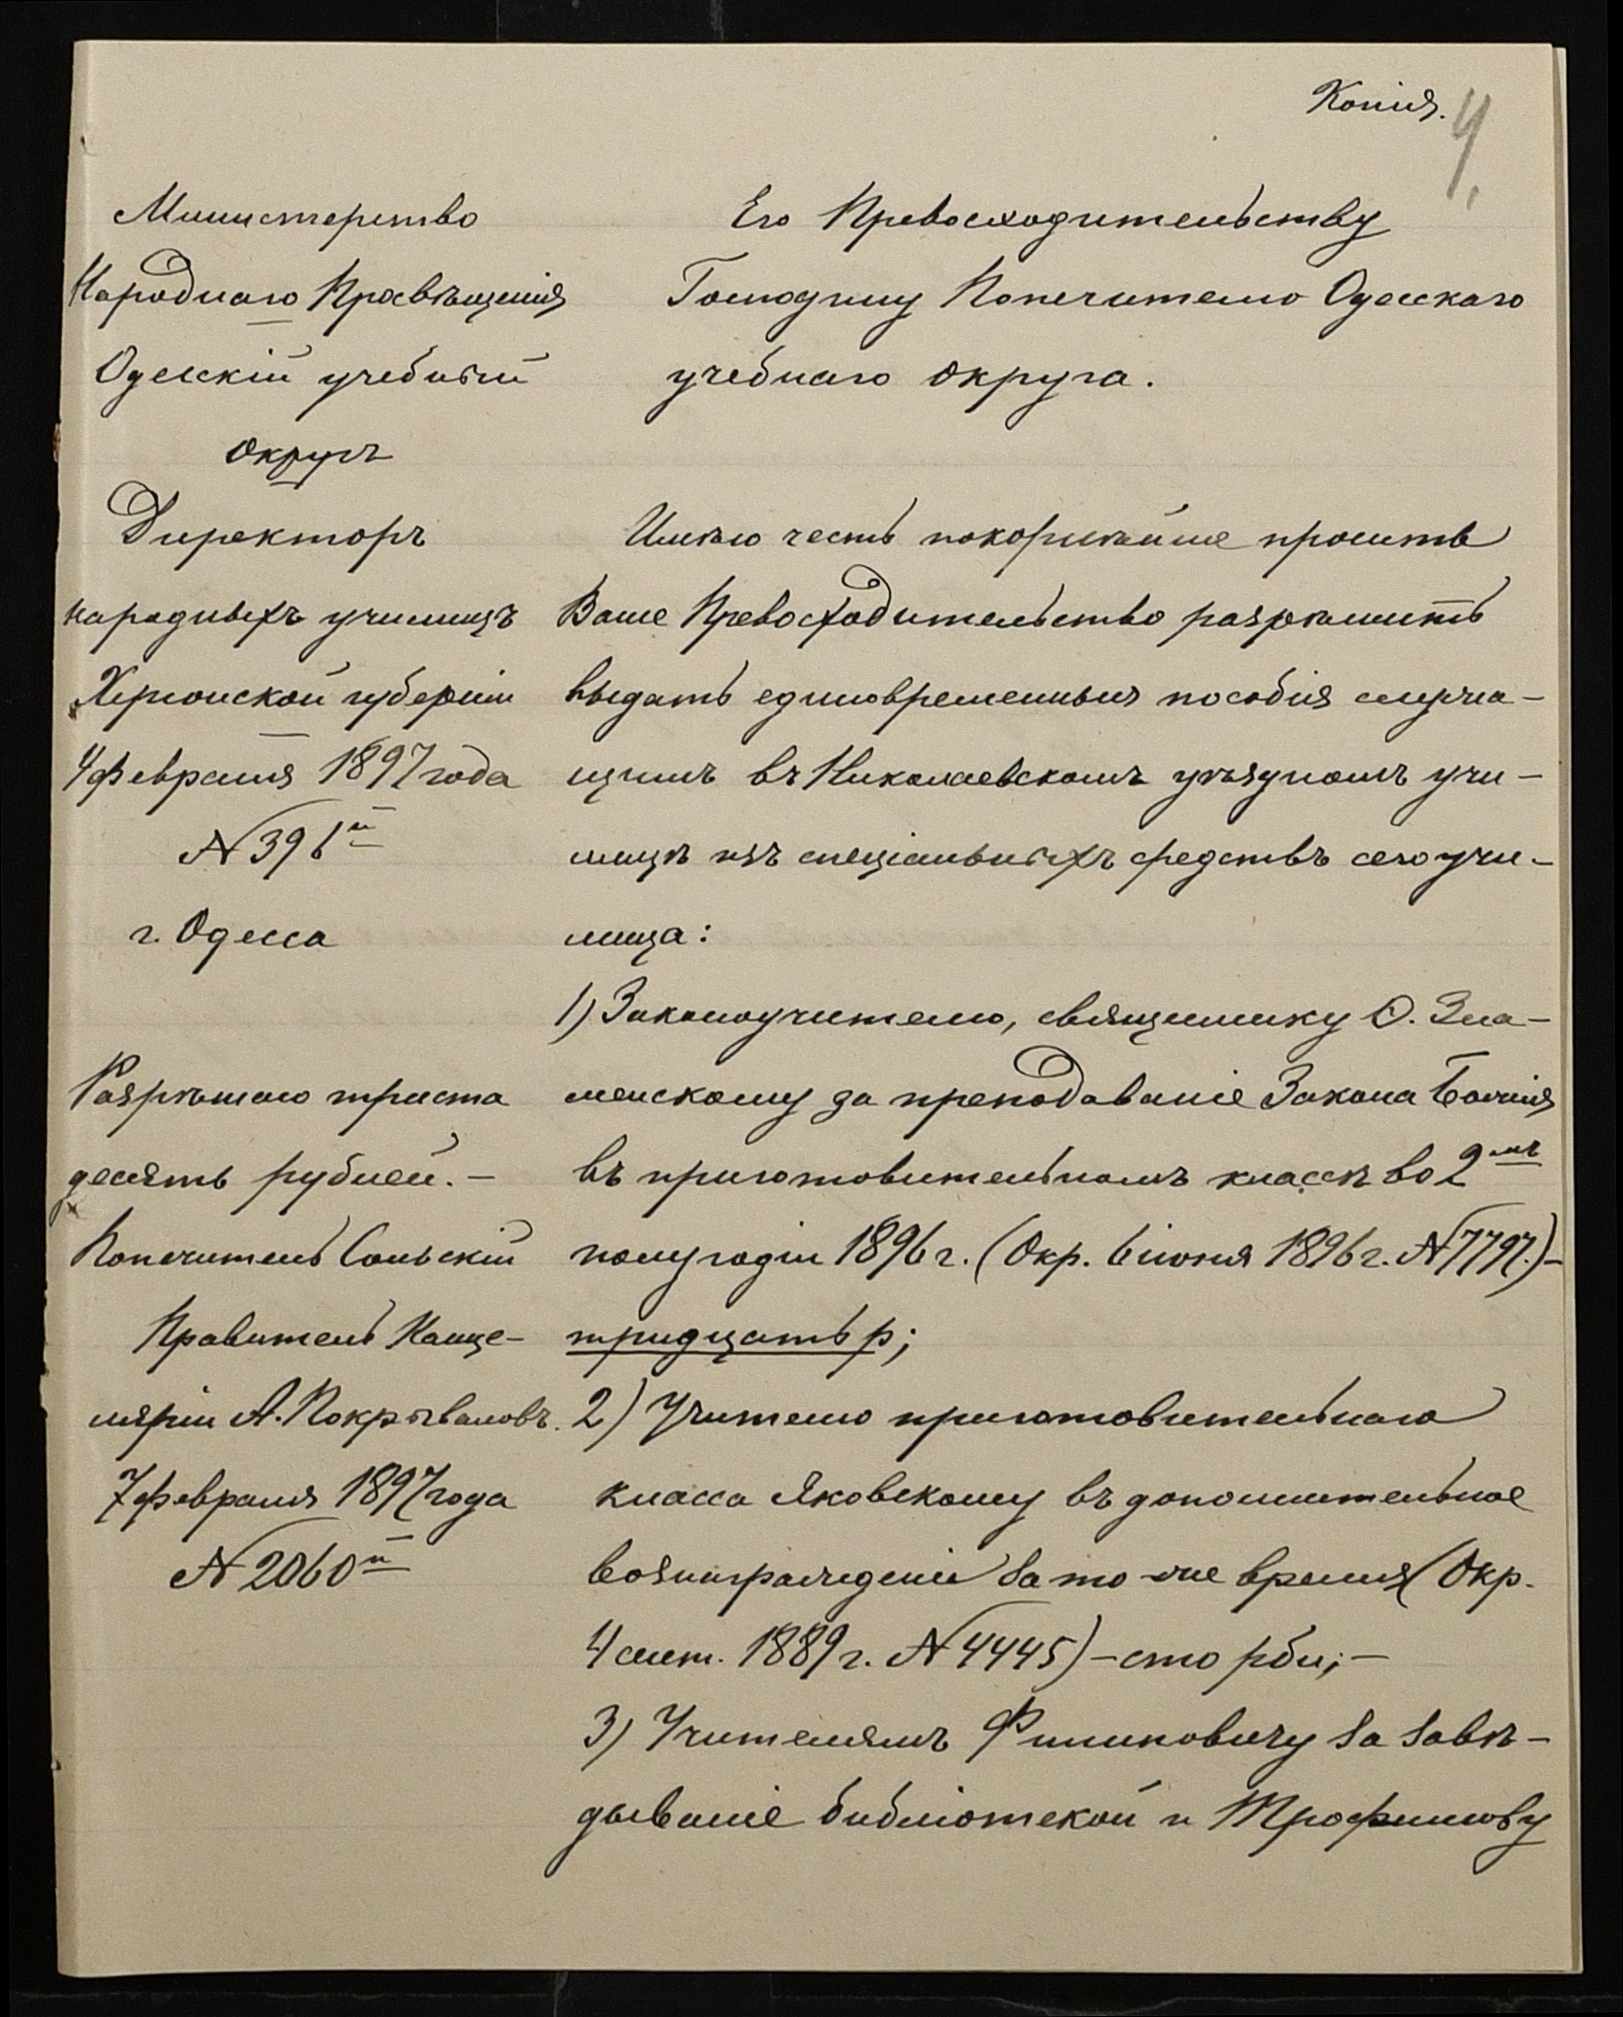 Копія.
4
Министерство
Народнаго Просвѣщенія
Одесскій учебный
округъ
Директоръ
народныхъ училищъ
Херсонской губерніи
4 февраля 1897 года
№ 396й
г. Одесса
Разрѣшаю триста
десять рублей. –
Попечитель Сольскій
Правитель Канце-
ляріи А. Покрываловъ.
7 февраля 1897 года
№ 2060й
Его Превосходительству
Господину Попечителю Одесскаго
учебнаго округа.
Имѣю честь покорнѣйше просить
Ваше Превосходительство разрѣшить
выдать единовременныя пособія служа-
щимъ въ Николаевскомъ уѣздномъ учи-
лищѣ изъ спеціальныхъ средствъ сего учи-
лища:
1) Законоучителю, священнику Ѳ. Зна-
менскому за преподаваніе Закона Божія
въ приготовительномъ классѣ во 2мъ
полугодіи 1896 г. (Окр. 6 іюня 1896 г. № 7797.) –
тридцать р;
2) Учителю приготовительнаго
класса Яковскому въ дополнительное
вознагражденіе за то-же время (Окр.
4 сент. 1889 г. № 4445) – сто рбл; –
3) Учителямъ Филиповичу за завѣ-
дываніе библіотекой и Трофимову